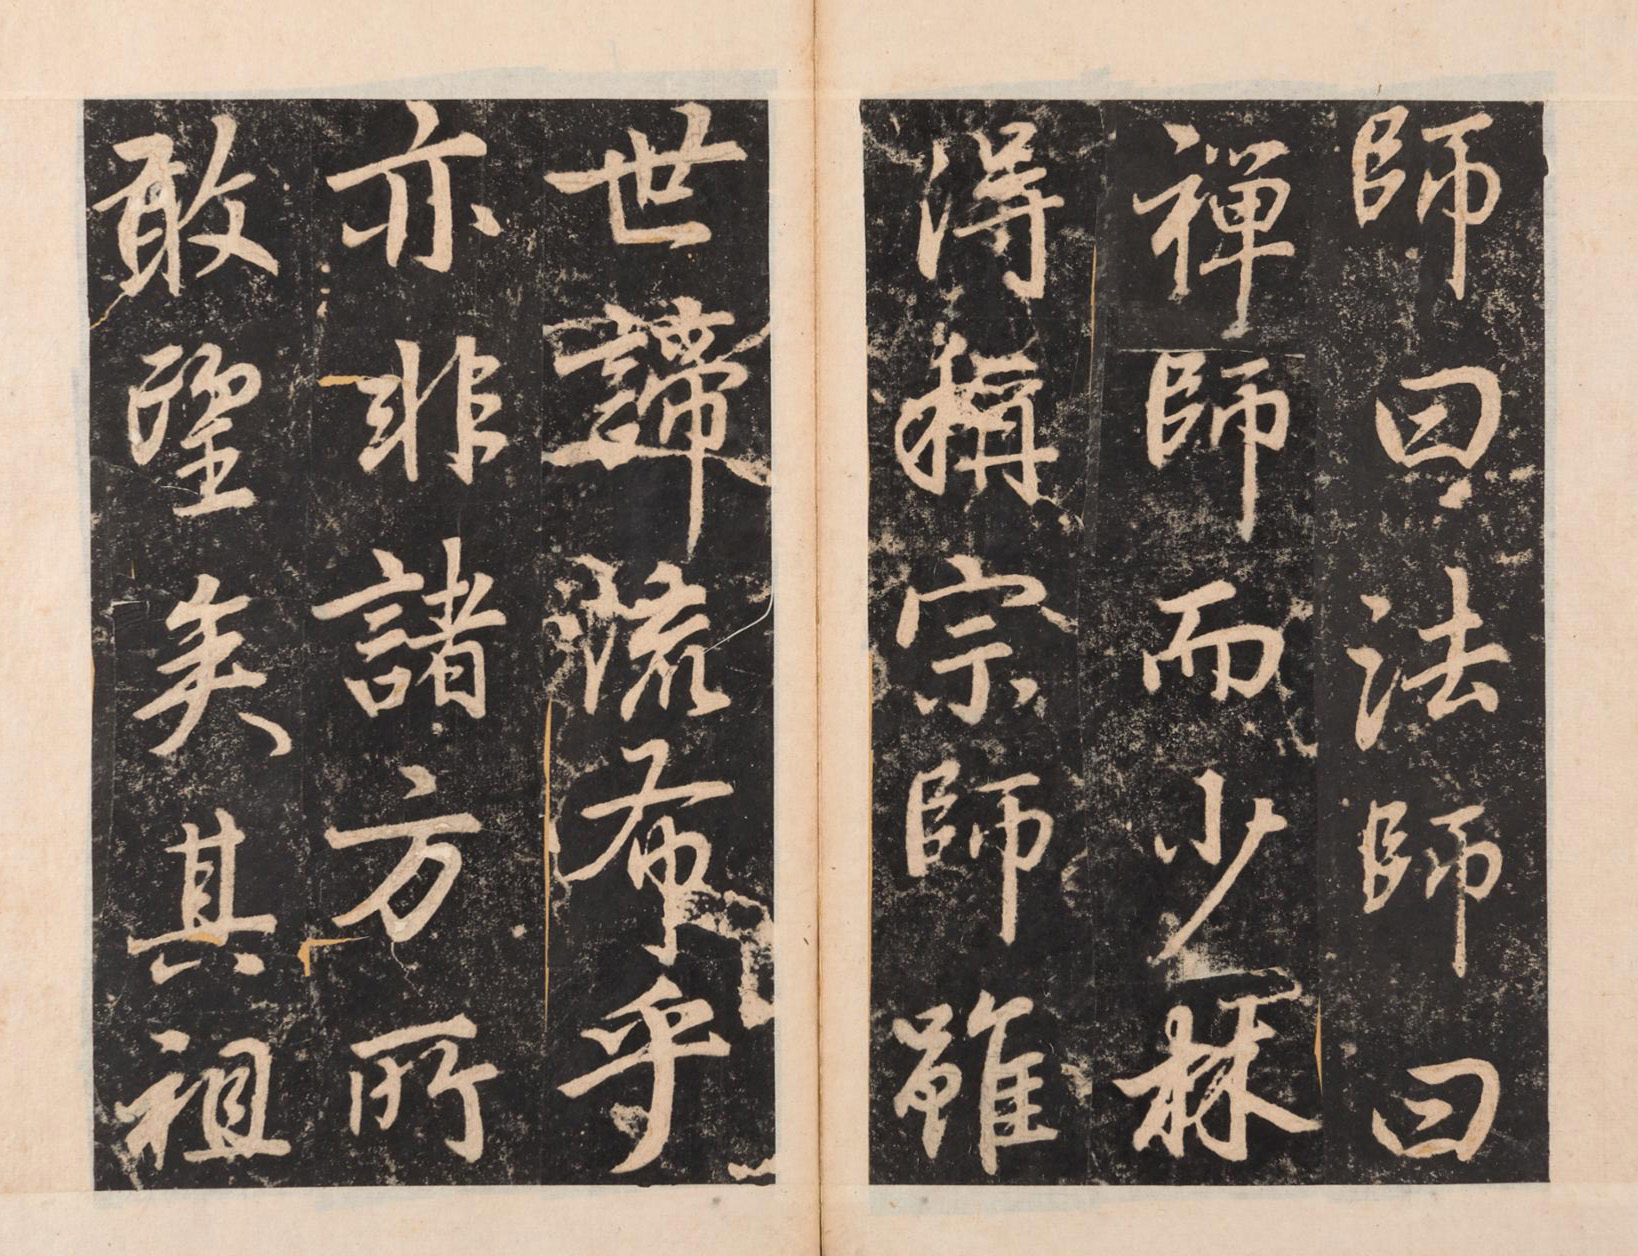 師曰法師曰
禪師而少林
得稱宗師雖
世諦流布乎
亦非諸方所
敢望矣其祖